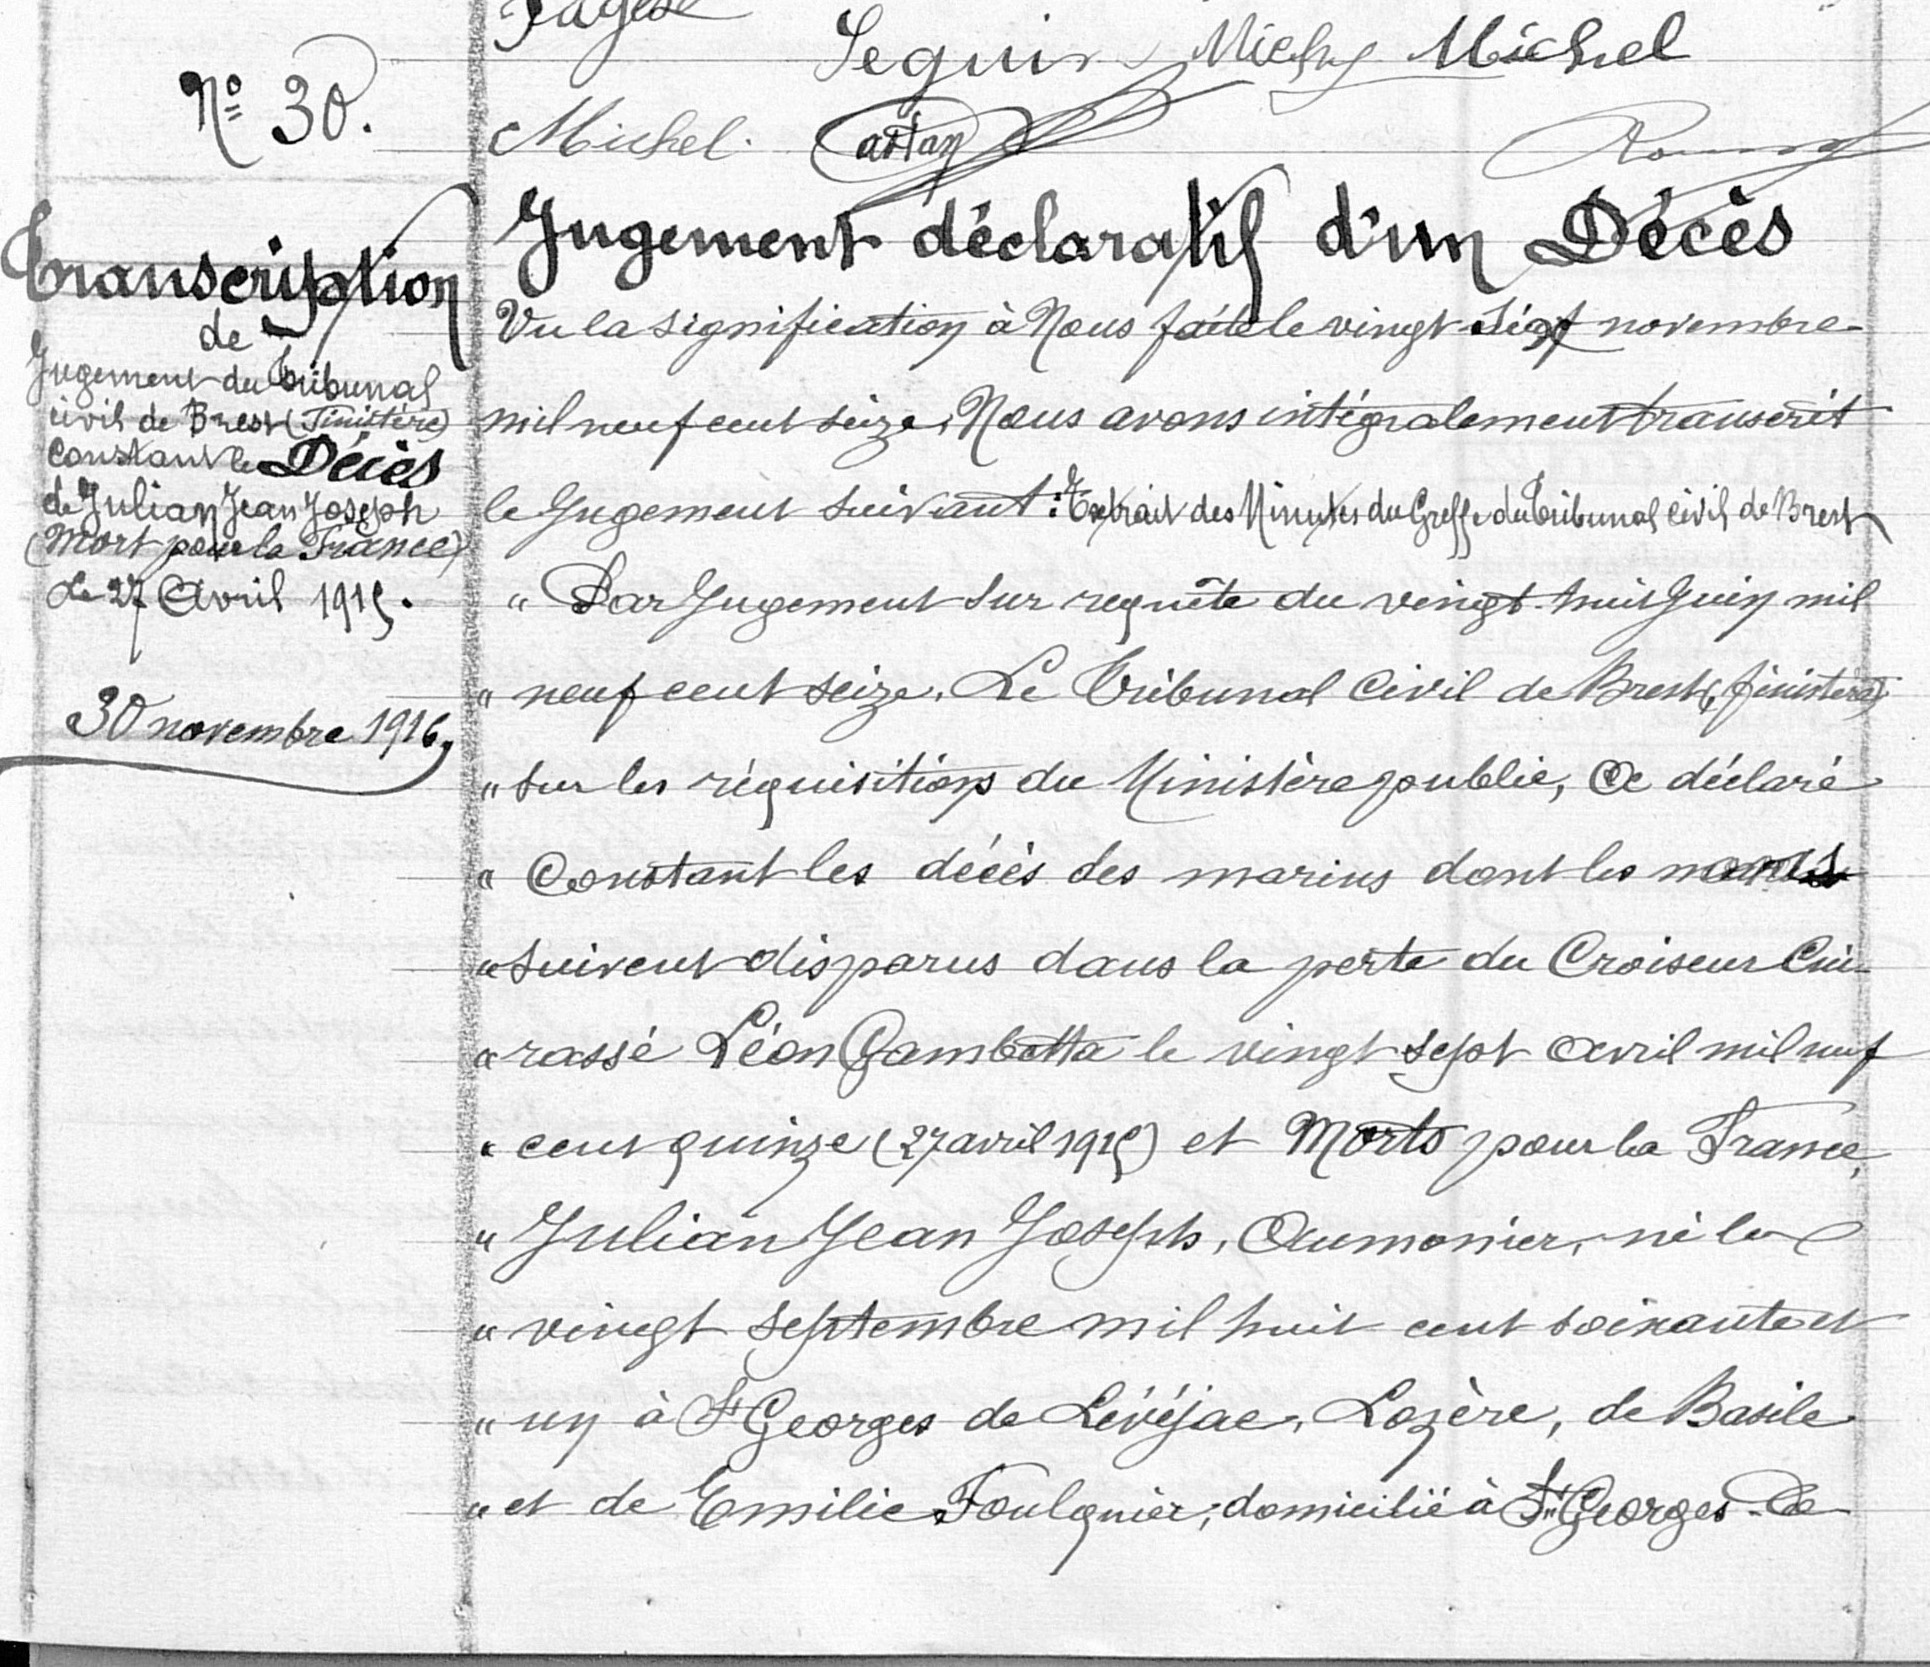 Seguin Michel Michel
Michel. Castan
N° 30.
Transcription
de
Jugement du Tribunal
civil de Brest (Finistère)
Constant le Décès
de Julian Jean Joseph
(Mort pour la France)
Le 27 Avril 1915.
30 novembre 1916,
Jugement déclaratif d'un Décès
Vu la signification à Nous faite le vingt sept novembre
mil neuf cent seize, Nous avons intégralement transcrit
le Jugement suivant : Extrait des Minutes du Greffe du Tribunal civil de Brest
" Par Jugement sur requête du vingt-huit Juin mil
" neuf cent seize, Le Tribunal Civil de Brest (finistère)
" sur les réquisitions du Ministère public, A déclaré
" Constant les décès des marins dont les noms
" suivent disparus dans la perte du Croiseur Cui-
" rassé Léon Gambetta le vingt sept avril mil neuf
" cent quinze (27 avril 1915) et Morts pour la France,
" Julian Jean Joseph, Aumonier, né le
" vingt septembre mil huit cent soixante et
" un à St Georges de Lévéjac, Lozère, de Basile
" et de Emilie Foulquier, domicilié à St Georges-de